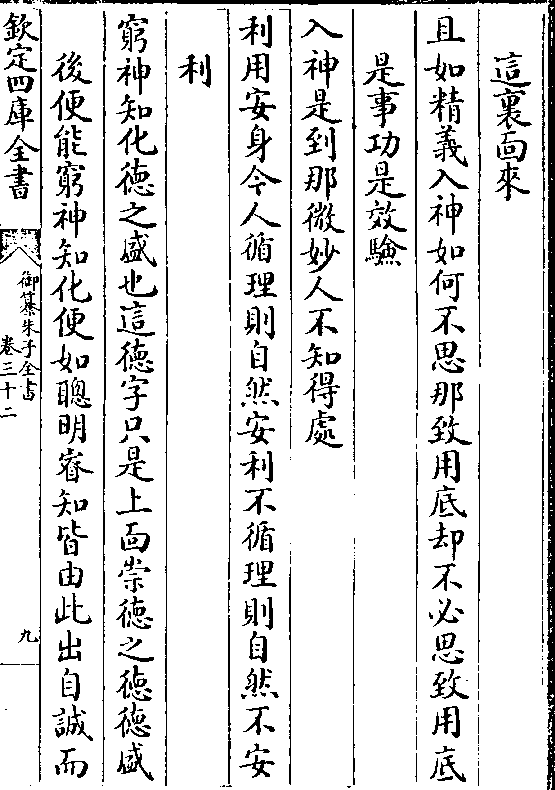 這裏面來
且如精義入神如何不思那致用底却不必思致用底
是事功是效驗
入神是到那微妙人不知得處
利用安身今人循理則自然安利不循理則自然不安
利
窮神知化德之盛也這德字只是上面崇德之德德盛
後便能窮神知化便如聰明睿知皆由此出自誠而
欽定四庫全書
御纂朱子全書
卷三十二
九